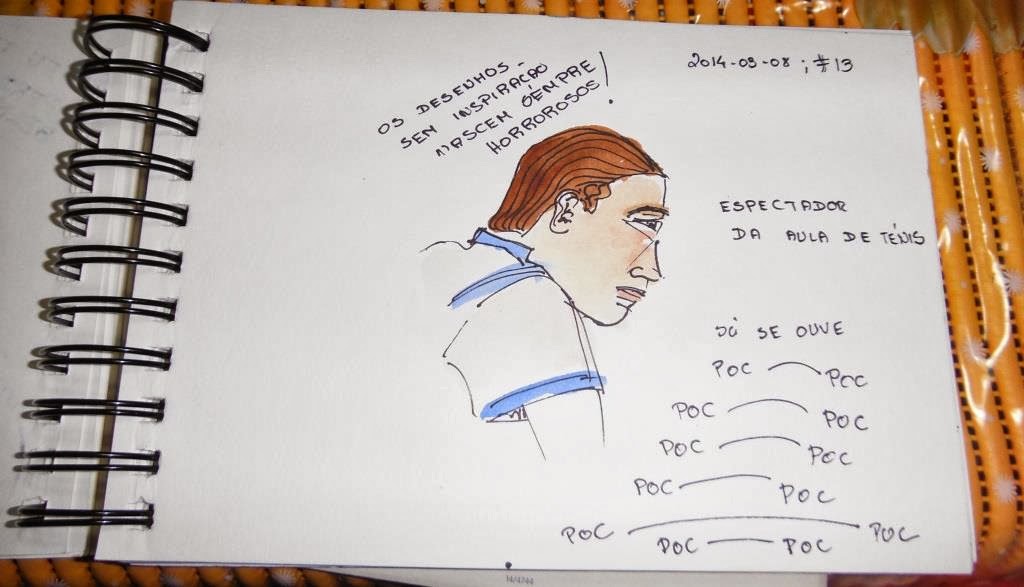 2014-03-08 ; #13
OS DESENHOS
SEM INSPIRAÇAO
NASCEM SEMPRE
HORROROSOS!
ESPECTADOR
DA AULA DE TÉNIS
SÓ SE OUVE
POC POC
POC POC
POC POC
POC POC
POC POC
POC POC